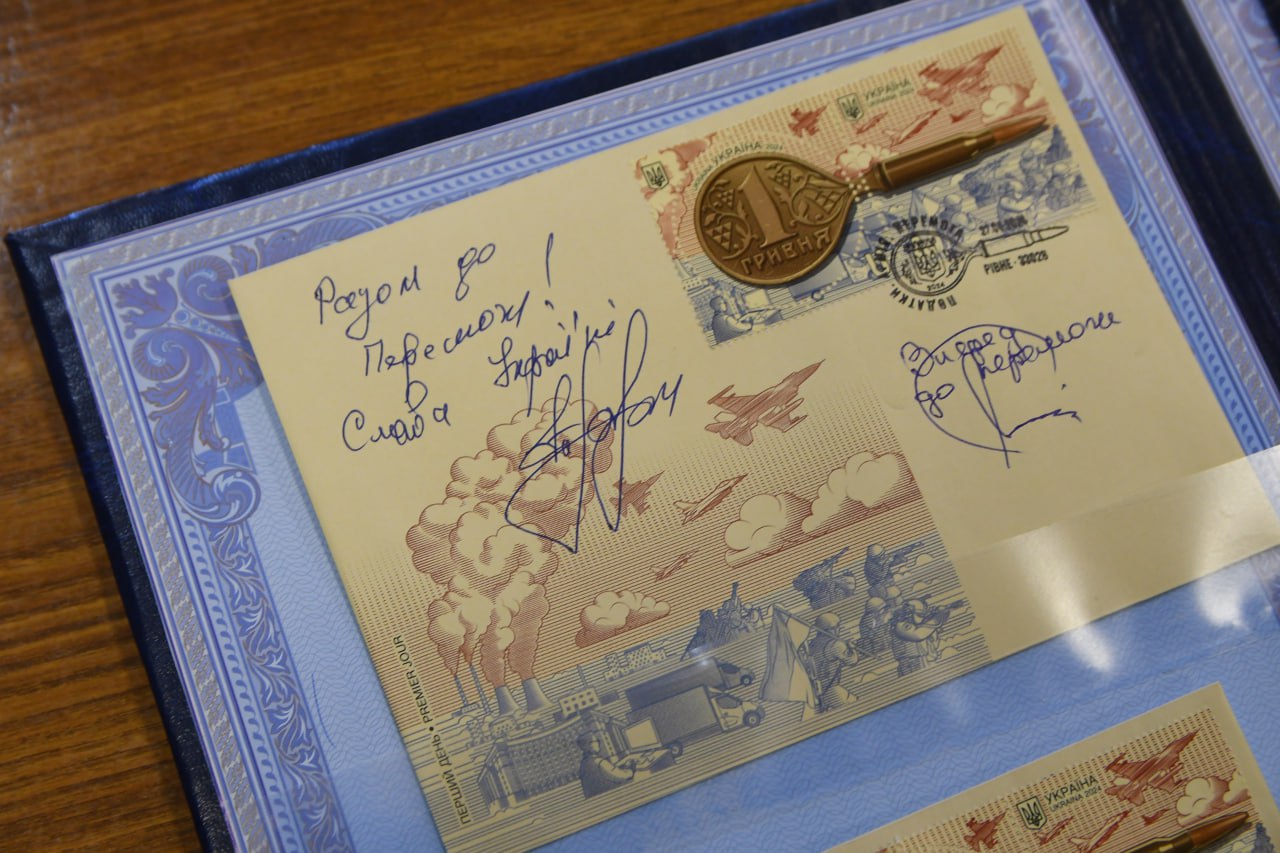 Разом до
Перемоги!
Слава Україні!
УКРАЇНА 2024
УКРАЇНА
UKRAINE 2024
1
ГРИВНЯ
ПОДАТКИ
ПЕРЕМОГА
27 2024
2024
РІВНЕ-33028
Вперед
до перемоги
ПЕРШИЙ ДЕНЬ • PREMIER JOUR
УКРАЇНА
UKRAINE 2024